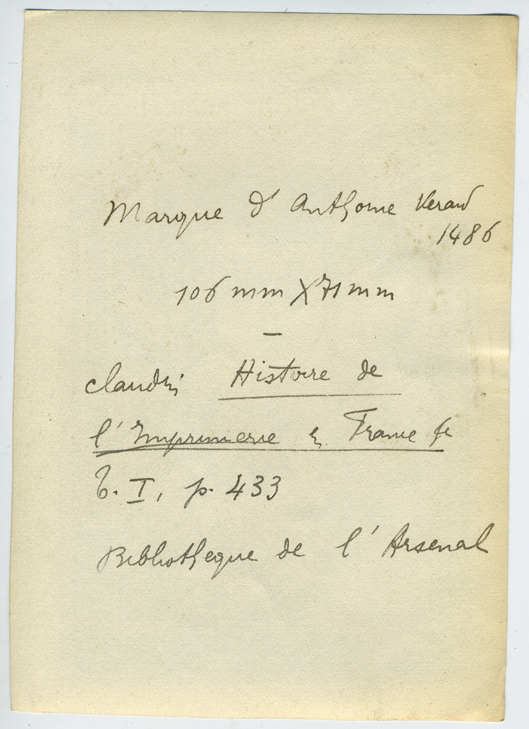 Marque d'Anthoine Verard
1486
106 mm X 71 mm
–
Claudin Histoire de
l'Imprimerie en France
t. I, p. 433
Bibliotheque de l'Arsenal